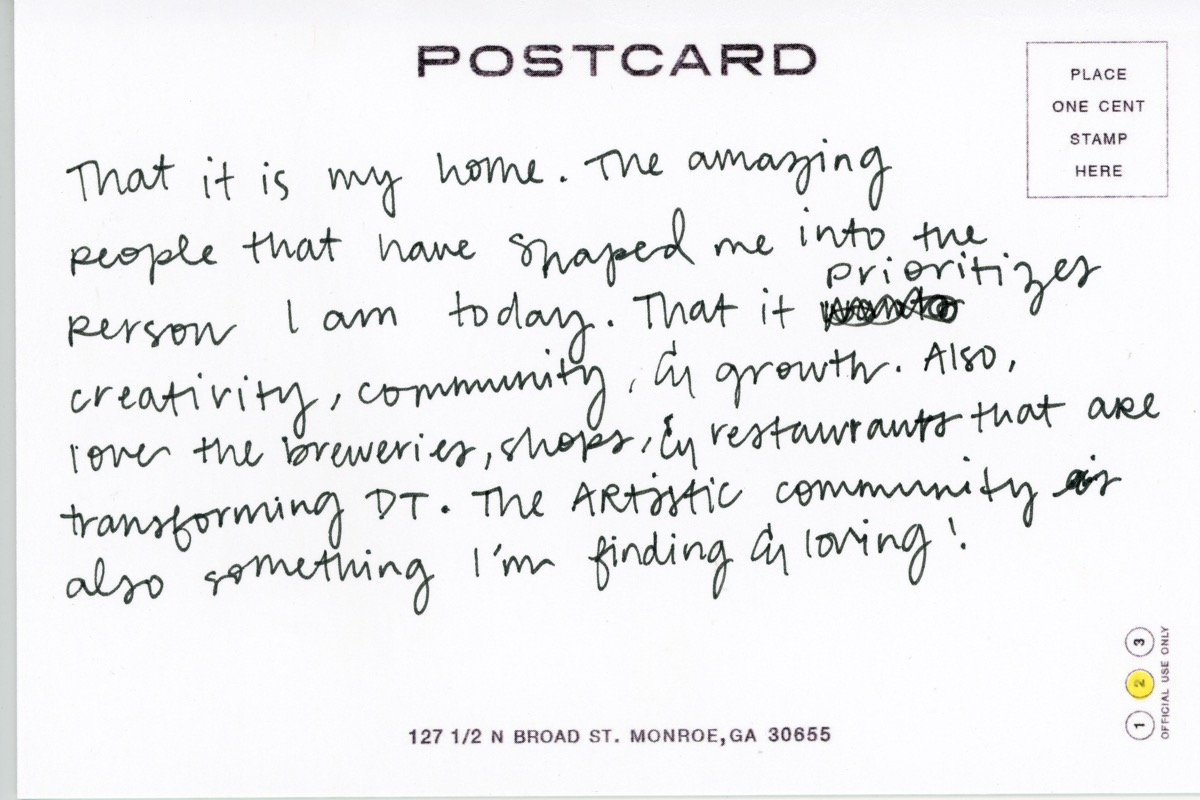 POSTCARD
PLACE
ONE CENT
STAMP
HERE
That it is my home. The amazing
people that have shaped me into the
prioritizes
person I am today. That it
creativity, community, & growth. Also,
love the breweries, shops, & restaurants that are
transforming DT. The ARtistic community is
also something I'm finding & loving!
1 2 3
OFFICIAL USE ONLY
127 1/2 N BROAD ST. MONROE, GA 30655